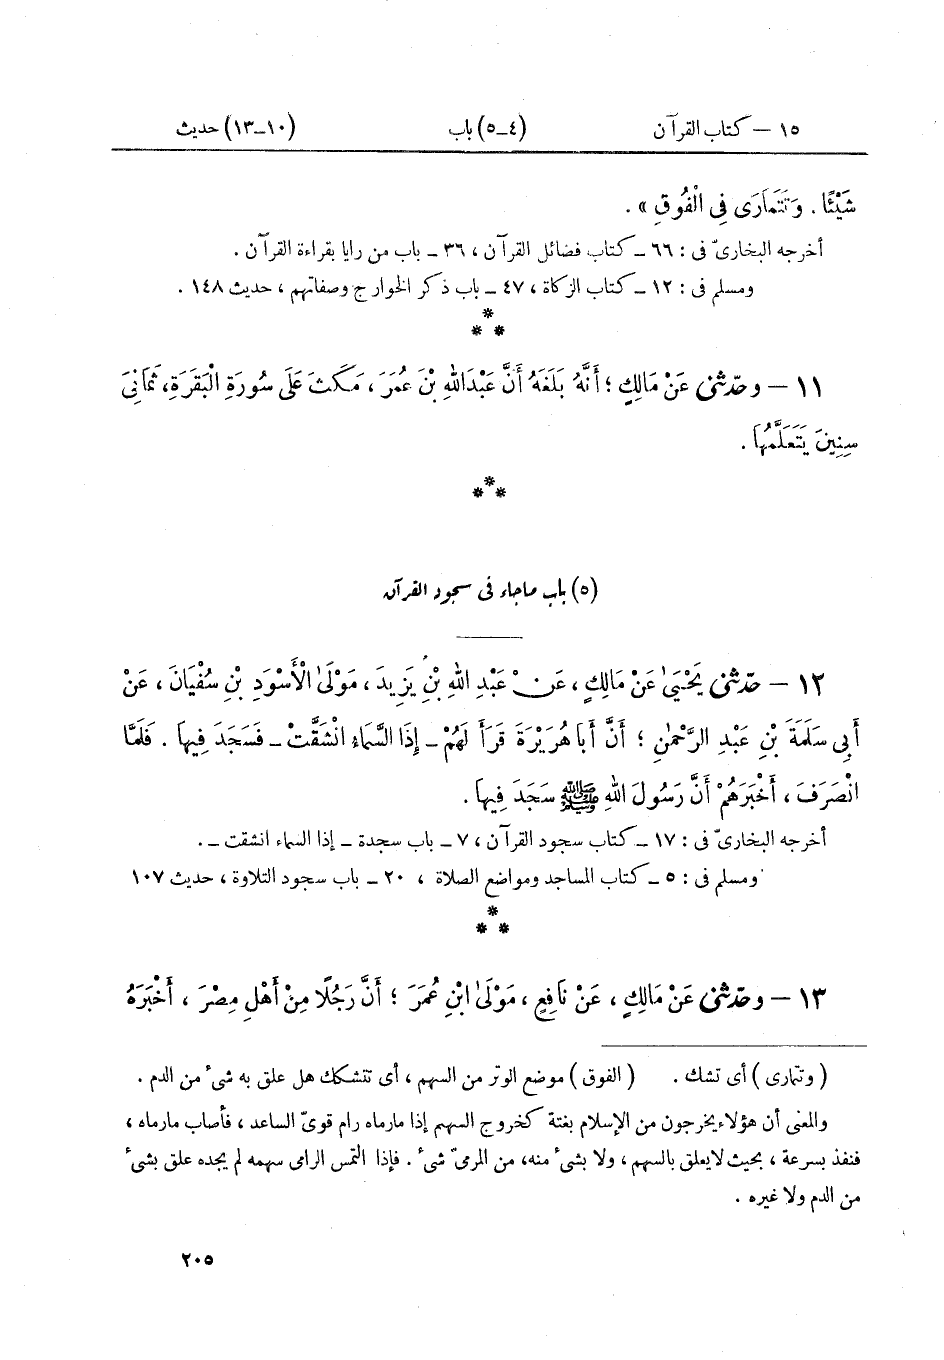 ١٥ – كتاب القرآن (٤–٥) باب (١٠–١٣) حديث
شَيْئًا . وَتَتَمَارَى فِي الْفُوقِ » .
أخرجه البخارىّ فى : ٦٦ – كتاب فضائل القرآن ، ٣٦ – باب من رايا بقراءة القرآن .
ومسلم فى : ١٢ – كتاب الزكاة ، ٤٧ – باب ذكر الخوارج وصفاتهم ، حديث ١٤٨ .
*
* *
١١ – وحدّثنى عَنْ مَالِكٍ ؛ أَنَّهُ بَلَغَهُ أَنَّ عَبْدَاللهِ بْنَ عُمَرَ ، مَكَثَ عَلَى سُورَةِ الْبَقَرَةِ، ثَمَانِىَ
سِنِينَ يَتَعَلَّمُهَا .
*
* *
(٥) باب ماجاء فى سجود القرآن
١٢ – حدّثنى يَحْيَىٰ عَنْ مَالِكٍ ، عَنْ عَبْدِ اللهِ بْنِ يَزِيدَ ، مَوْلَىٰ الْأَسْوَدِ بْنِ سُفْيَانَ ، عَنْ
أَبِي سَلَمَةَ بْنِ عَبْدِ الرَّحْمٰنِ ؛ أَنَّ أَبَا هُرَيْرَةَ قَرَأَ لَهُمْ – إِذَا السَّمَاءُ انْشَقَّتْ – فَسَجَدَ فِيهَا . فَلَمَّا
انْصَرَفَ ، أَخْبَرَهُمْ أَنَّ رَسُولَ اللهِ ﷺ سَجَدَ فِيهَا .
أخرجه البخارىّ فى : ١٧ – كتاب سجود القرآن ، ٧ – باب سجدة – إذا السماء انشقت – .
ومسلم فى : ٥ – كتاب المساجد ومواضع الصلاة ، ٢٠ – باب سجود التلاوة ، حديث ١٠٧
*
* *
١٣ – وحدّثنى عَنْ مَالِكٍ ، عَنْ نَافِعٍ ، مَوْلَىٰ ابْنِ عُمَرَ ؛ أَنَّ رَجُلًا مِنْ أَهْلِ مِصْرَ ، أَخْبَرَهُ
( وتتمارى ) أى تشك . ( الفوق ) موضع الوتر من السهم ، أى تتشكك هل علق به شىء من الدم .
والمعنى أن هؤلاء يخرجون من الإسلام بغتة كخروج السهم إذا مارماه رام قوىّ الساعد ، فأصاب مارماه ،
فنفذ بسرعة ، بحيث لايعلق بالسهم ، ولا بشىء منه، من المرمىّ شىء . فإذا التمس الرامى سهمه لم يجده علق بشىء
من الدم ولا غيره .
٢٠٥